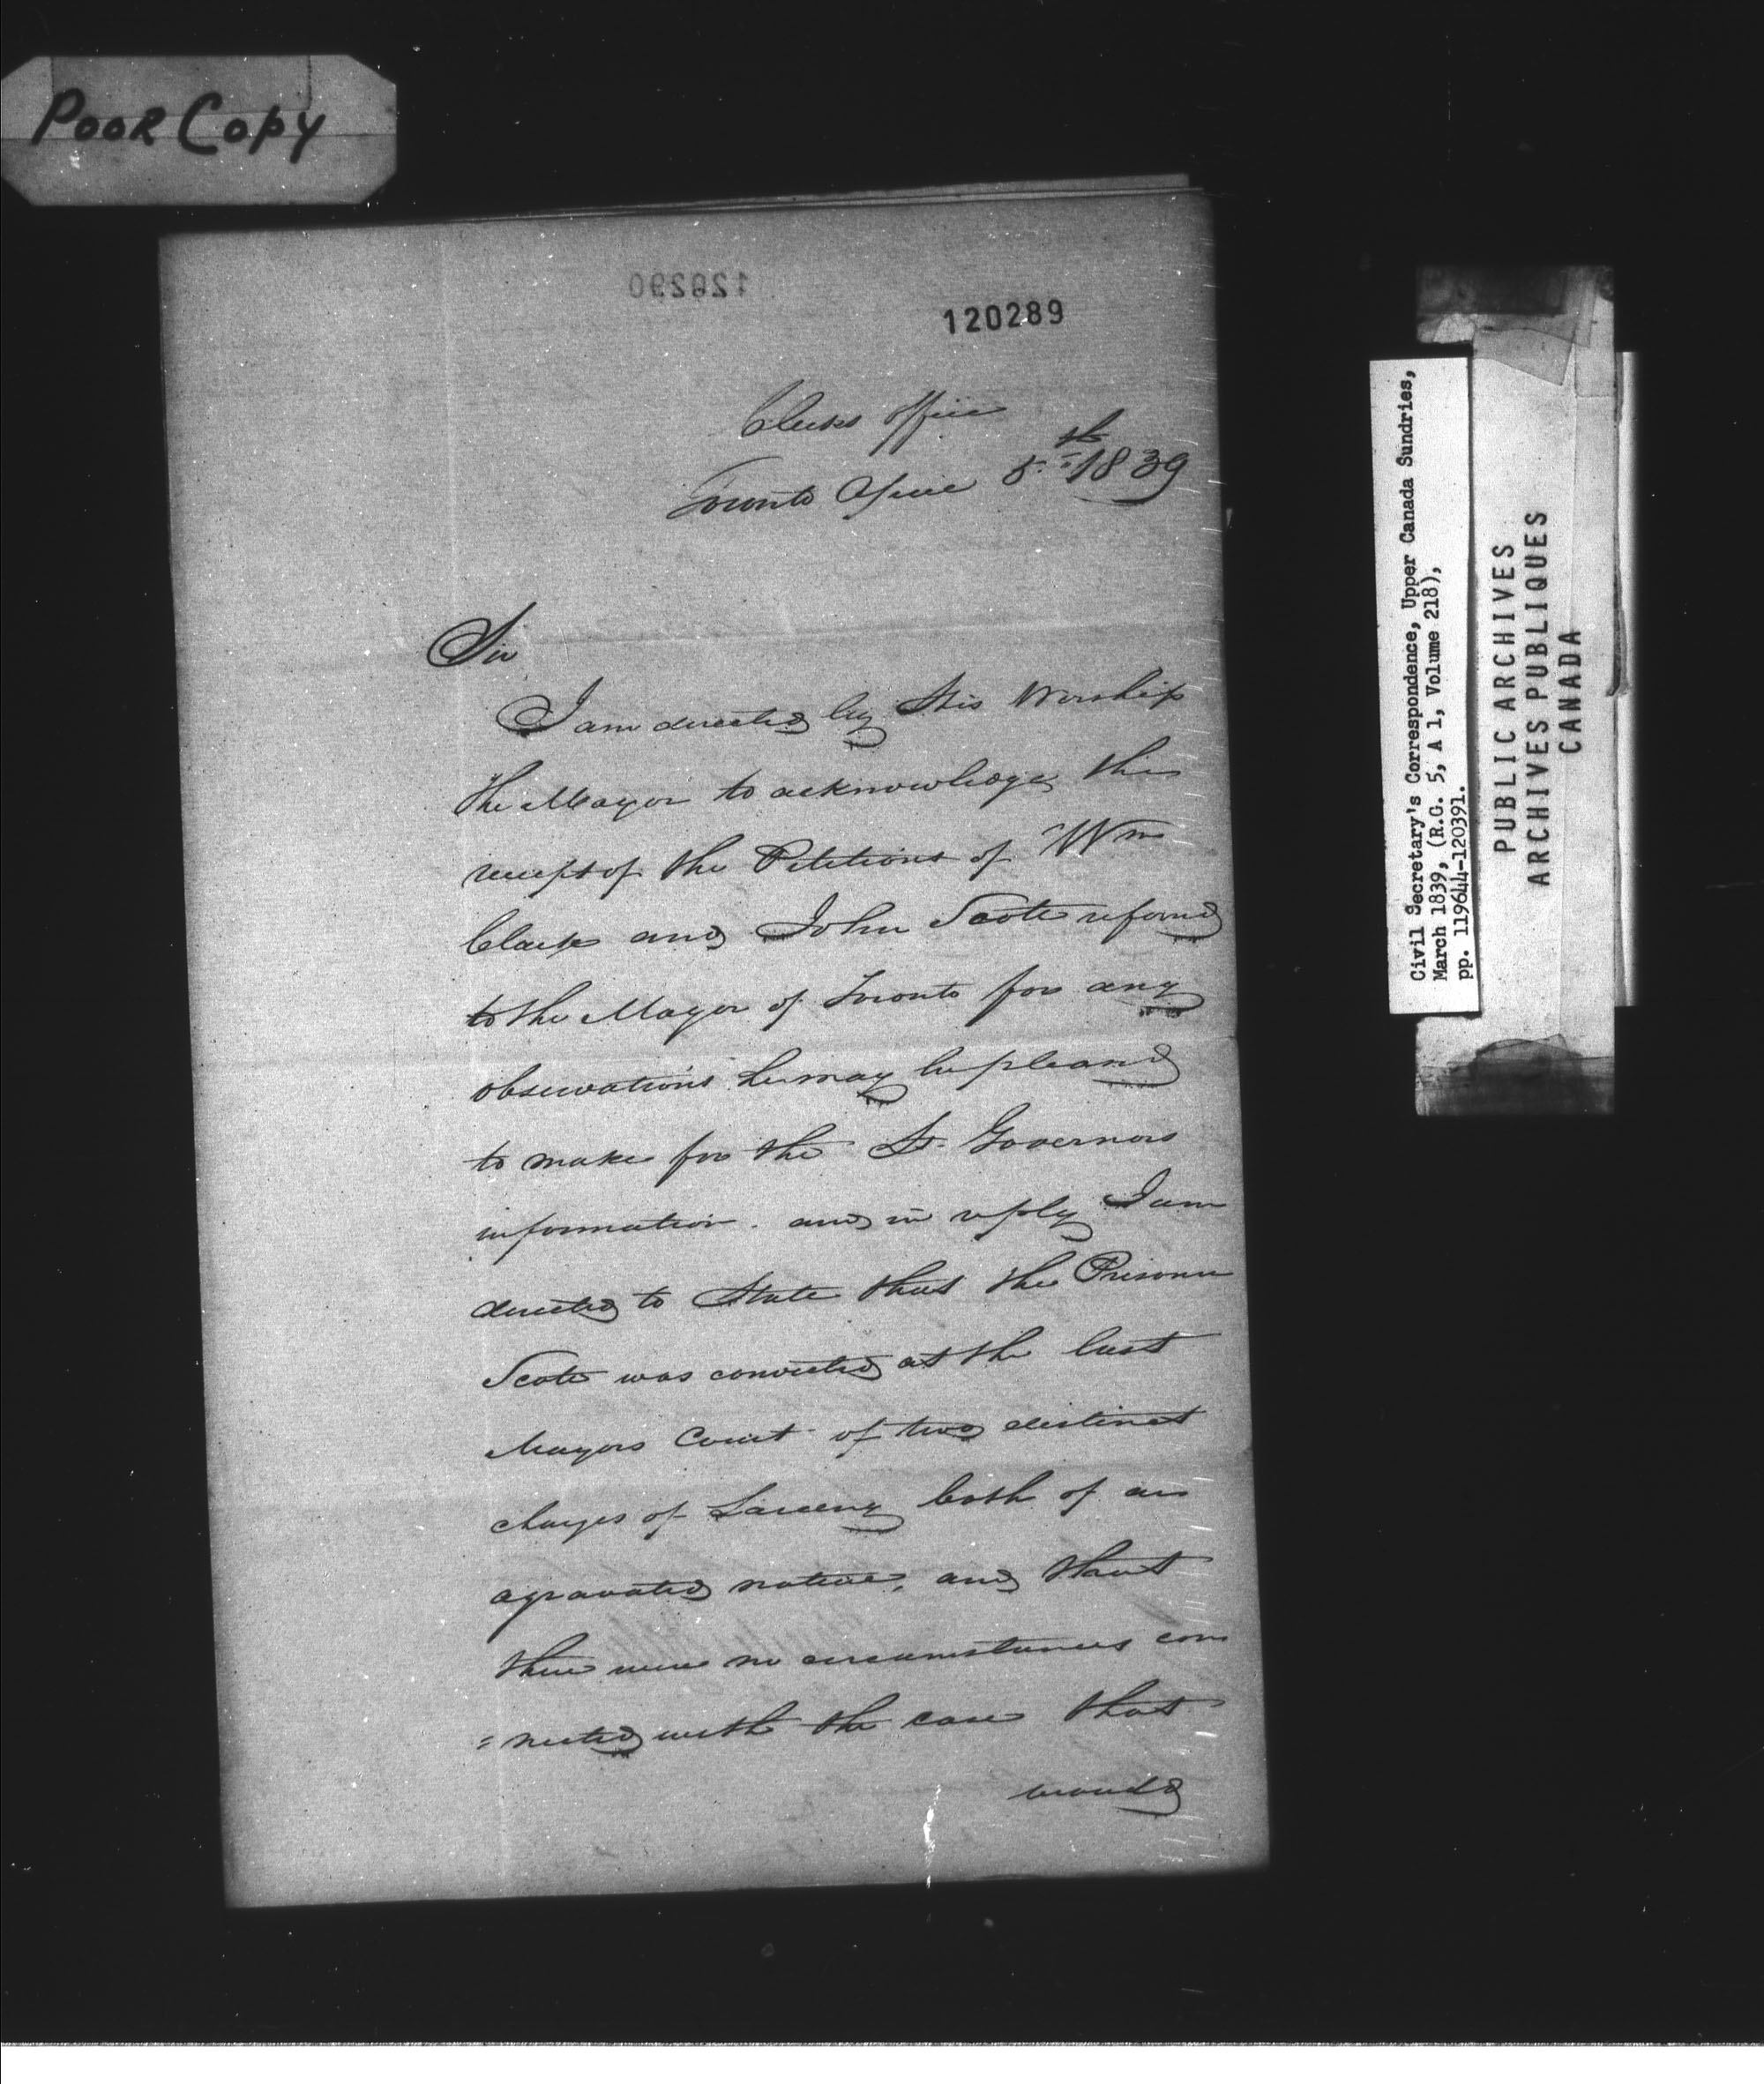 Poor Copy
120290
120289
Clerks office
Toronto April 5th 1839
Sir
I am directed by His Worship
the Mayor to acknowledge the
receipt of the Petitions of Wm
Clark and John Scott referred
to the Mayor of Toronto for any
observations he may be pleased
to make for the Lt. Governors
information. and in reply I am
directed to State that the Prisoner
Scott was convicted at the last
Mayors Court of two distinct
charges of Larceny both of an
agravated nature, and that
there were no circumstances con
=nected with the case that
would
Civil Secretary's Correspondence, Upper Canada Sundries,
March 1839, (R.G. 5, A 1, Volume 218),
pp. 119644-120391.
PUBLIC ARCHIVES
ARCHIVES PUBLIQUES
CANADA